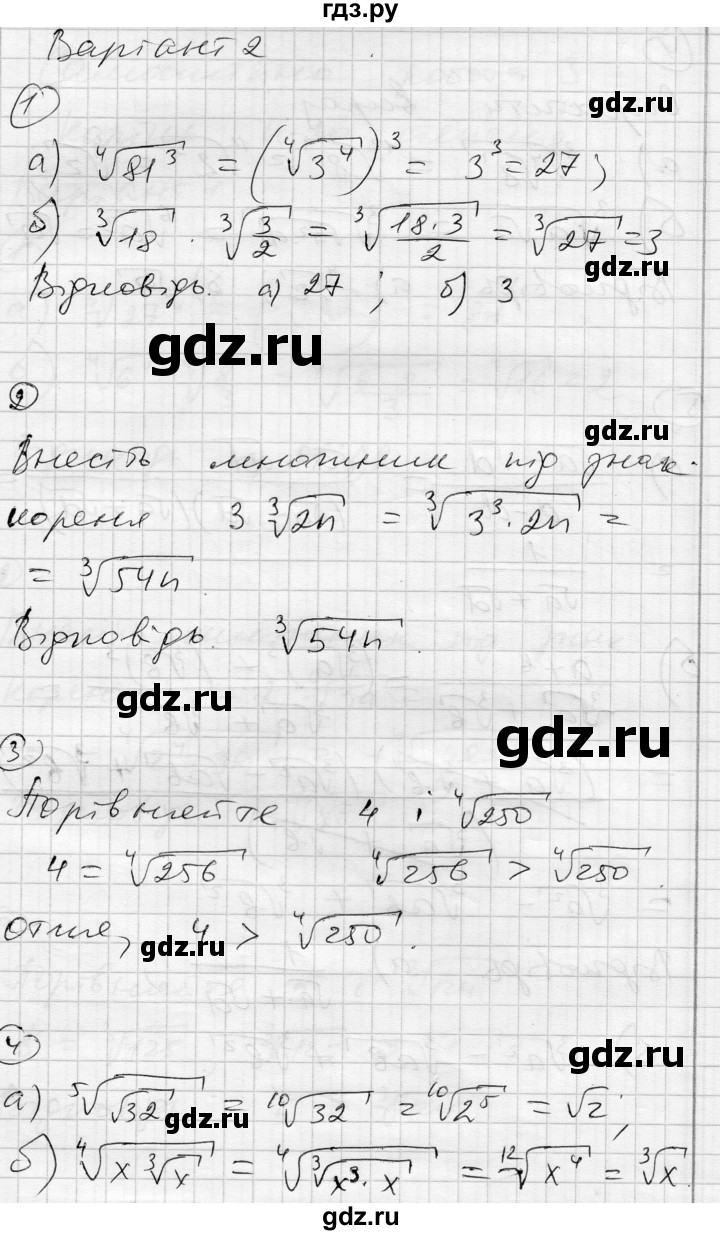 гдз.ру
Варіант 2
gdz.ru
1
а) ⁴√81³ = (⁴√3⁴)³ = 3³ = 27;
б) ³√18 · ³√(3/2) = ³√(18·3/2) = ³√27 = 3
gdz.ru
Відповідь. а) 27; б) 3
gdz.ru
2
gdz.ru
Внесть множник під знак
кореня 3 ³√2n = ³√(3³·2n) =
= ³√54n
Відповідь. ³√54n.
gdz.ru
gdz.ru
3
Порівняйте 4 і ⁴√250
4 = ⁴√256 ⁴√256 > ⁴√250.
отже, 4 > ⁴√250.
gdz.ru
4
gdz.ru
а) ⁵√(√32) = ¹⁰√32 = ¹⁰√2⁵ = √2;
gdz.ru
б) ⁴√(x ³√x) = ⁴√(³√(x³·x)) = ¹²√x⁴ = ³√x.
gdz.ru